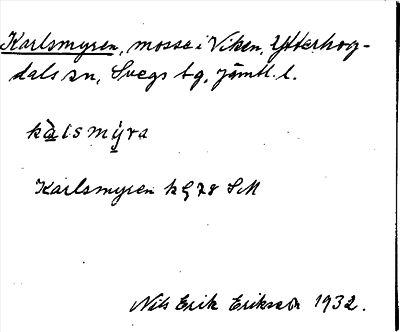 Karlsmyren, mosse i Viken, Ytterhog-
dals sn, Svegs tg, Jämtl. l.
kàlsmýra
Karlsmyren kG 78 SM
Nils Erik Eriksson 1932.